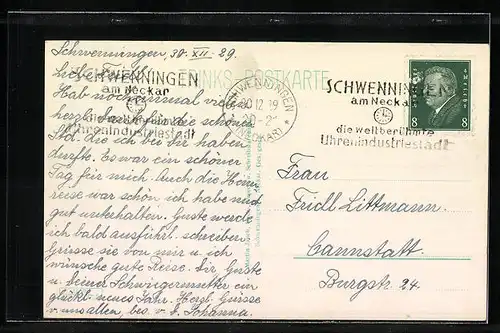 Schwenningen, 30.XII.29.
Hab nochmal vielen
herzl. Dank für die schönen
Std. die ich bei dir haben
durfte. Es war ein schöner
Tag für mich. Auch die Heim
reise war schön, ich habe mich
gut unterhalten. Guste werde
ich bald ausführl. schreiben.
Grüsse sie von mir u. ich
wünsche gute Reise. Dir, Guste
u. deiner Schwiegermutter ein
glückl. neues Jahr. Herzl. Grüsse
v. uns allen, bes. v. d. Johanna.
POSTKARTE
SCHWENNINGEN
am Neckar
die weltberühmte
Uhrenindustriestadt
SCHWENNINGEN
30.12.29
(NECKAR)
SCHWENNINGEN
am Neckar
die weltberühmte
Uhrenindustriestadt
8 8
Frau
Fridl Littmann
Cannstatt.
Burgstr. 24.